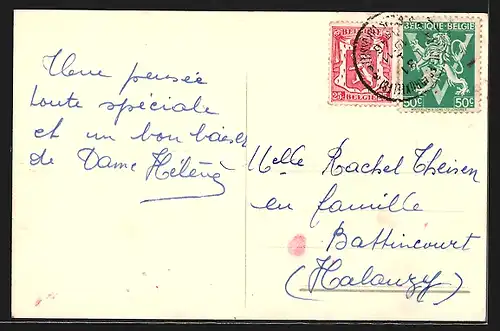 Une pensée
toute spéciale
et un bon baiser
de Dame Hélène
Melle Rachel Theisen
en famille
Battincourt
(Halanzy)
BELGIQUE-BELGIE
50c 50c